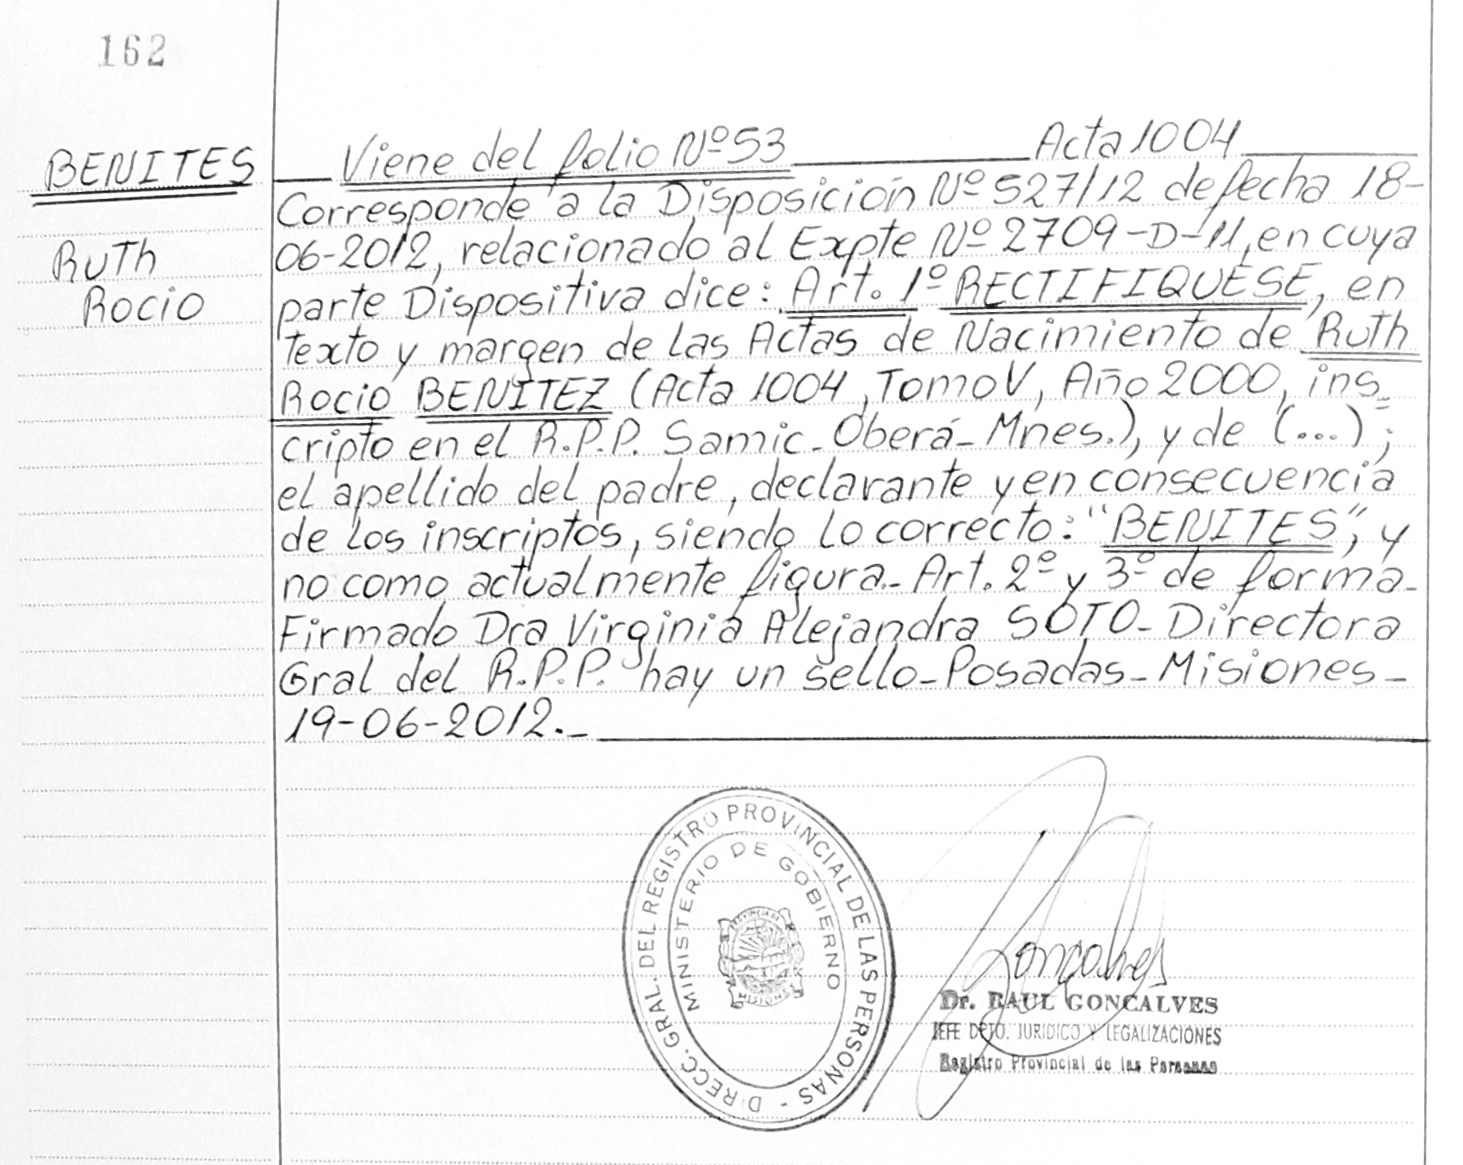 162
BENITES
Ruth
Rocio
Viene del folio Nº 53 Acta 1004
Corresponde a la Disposición Nº 527/12 de fecha 18-
06-2012, relacionado al Expte Nº 2709-D-11, en cuya
parte Dispositiva dice: Art. 1º RECTIFIQUESE, en
texto y margen de las Actas de Nacimiento de Ruth
Rocio BENITEZ (Acta 1004, Tomo V, Año 2000, ins-
cripto en el R.P.P. Samic-Oberá-Mnes.), y de (...);
el apellido del padre, declarante y en consecuencia
de los inscriptos, siendo lo correcto: "BENITES", y
no como actualmente figura.- Art. 2º y 3º de forma-
Firmado Dra Virginia Alejandra SOTO- Directora
Gral del R.P.P. hay un sello-Posadas-Misiones-
19-06-2012.-
DIRECC. GRAL. DEL REGISTRO PROVINCIAL DE LAS PERSONAS -
MINISTERIO DE GOBIERNO
PROVINCIA DE
MISIONES
Goncalves
Dr. RAUL GONCALVES
JEFE DPTO. JURIDICO Y LEGALIZACIONES
Registro Provincial de las Personas